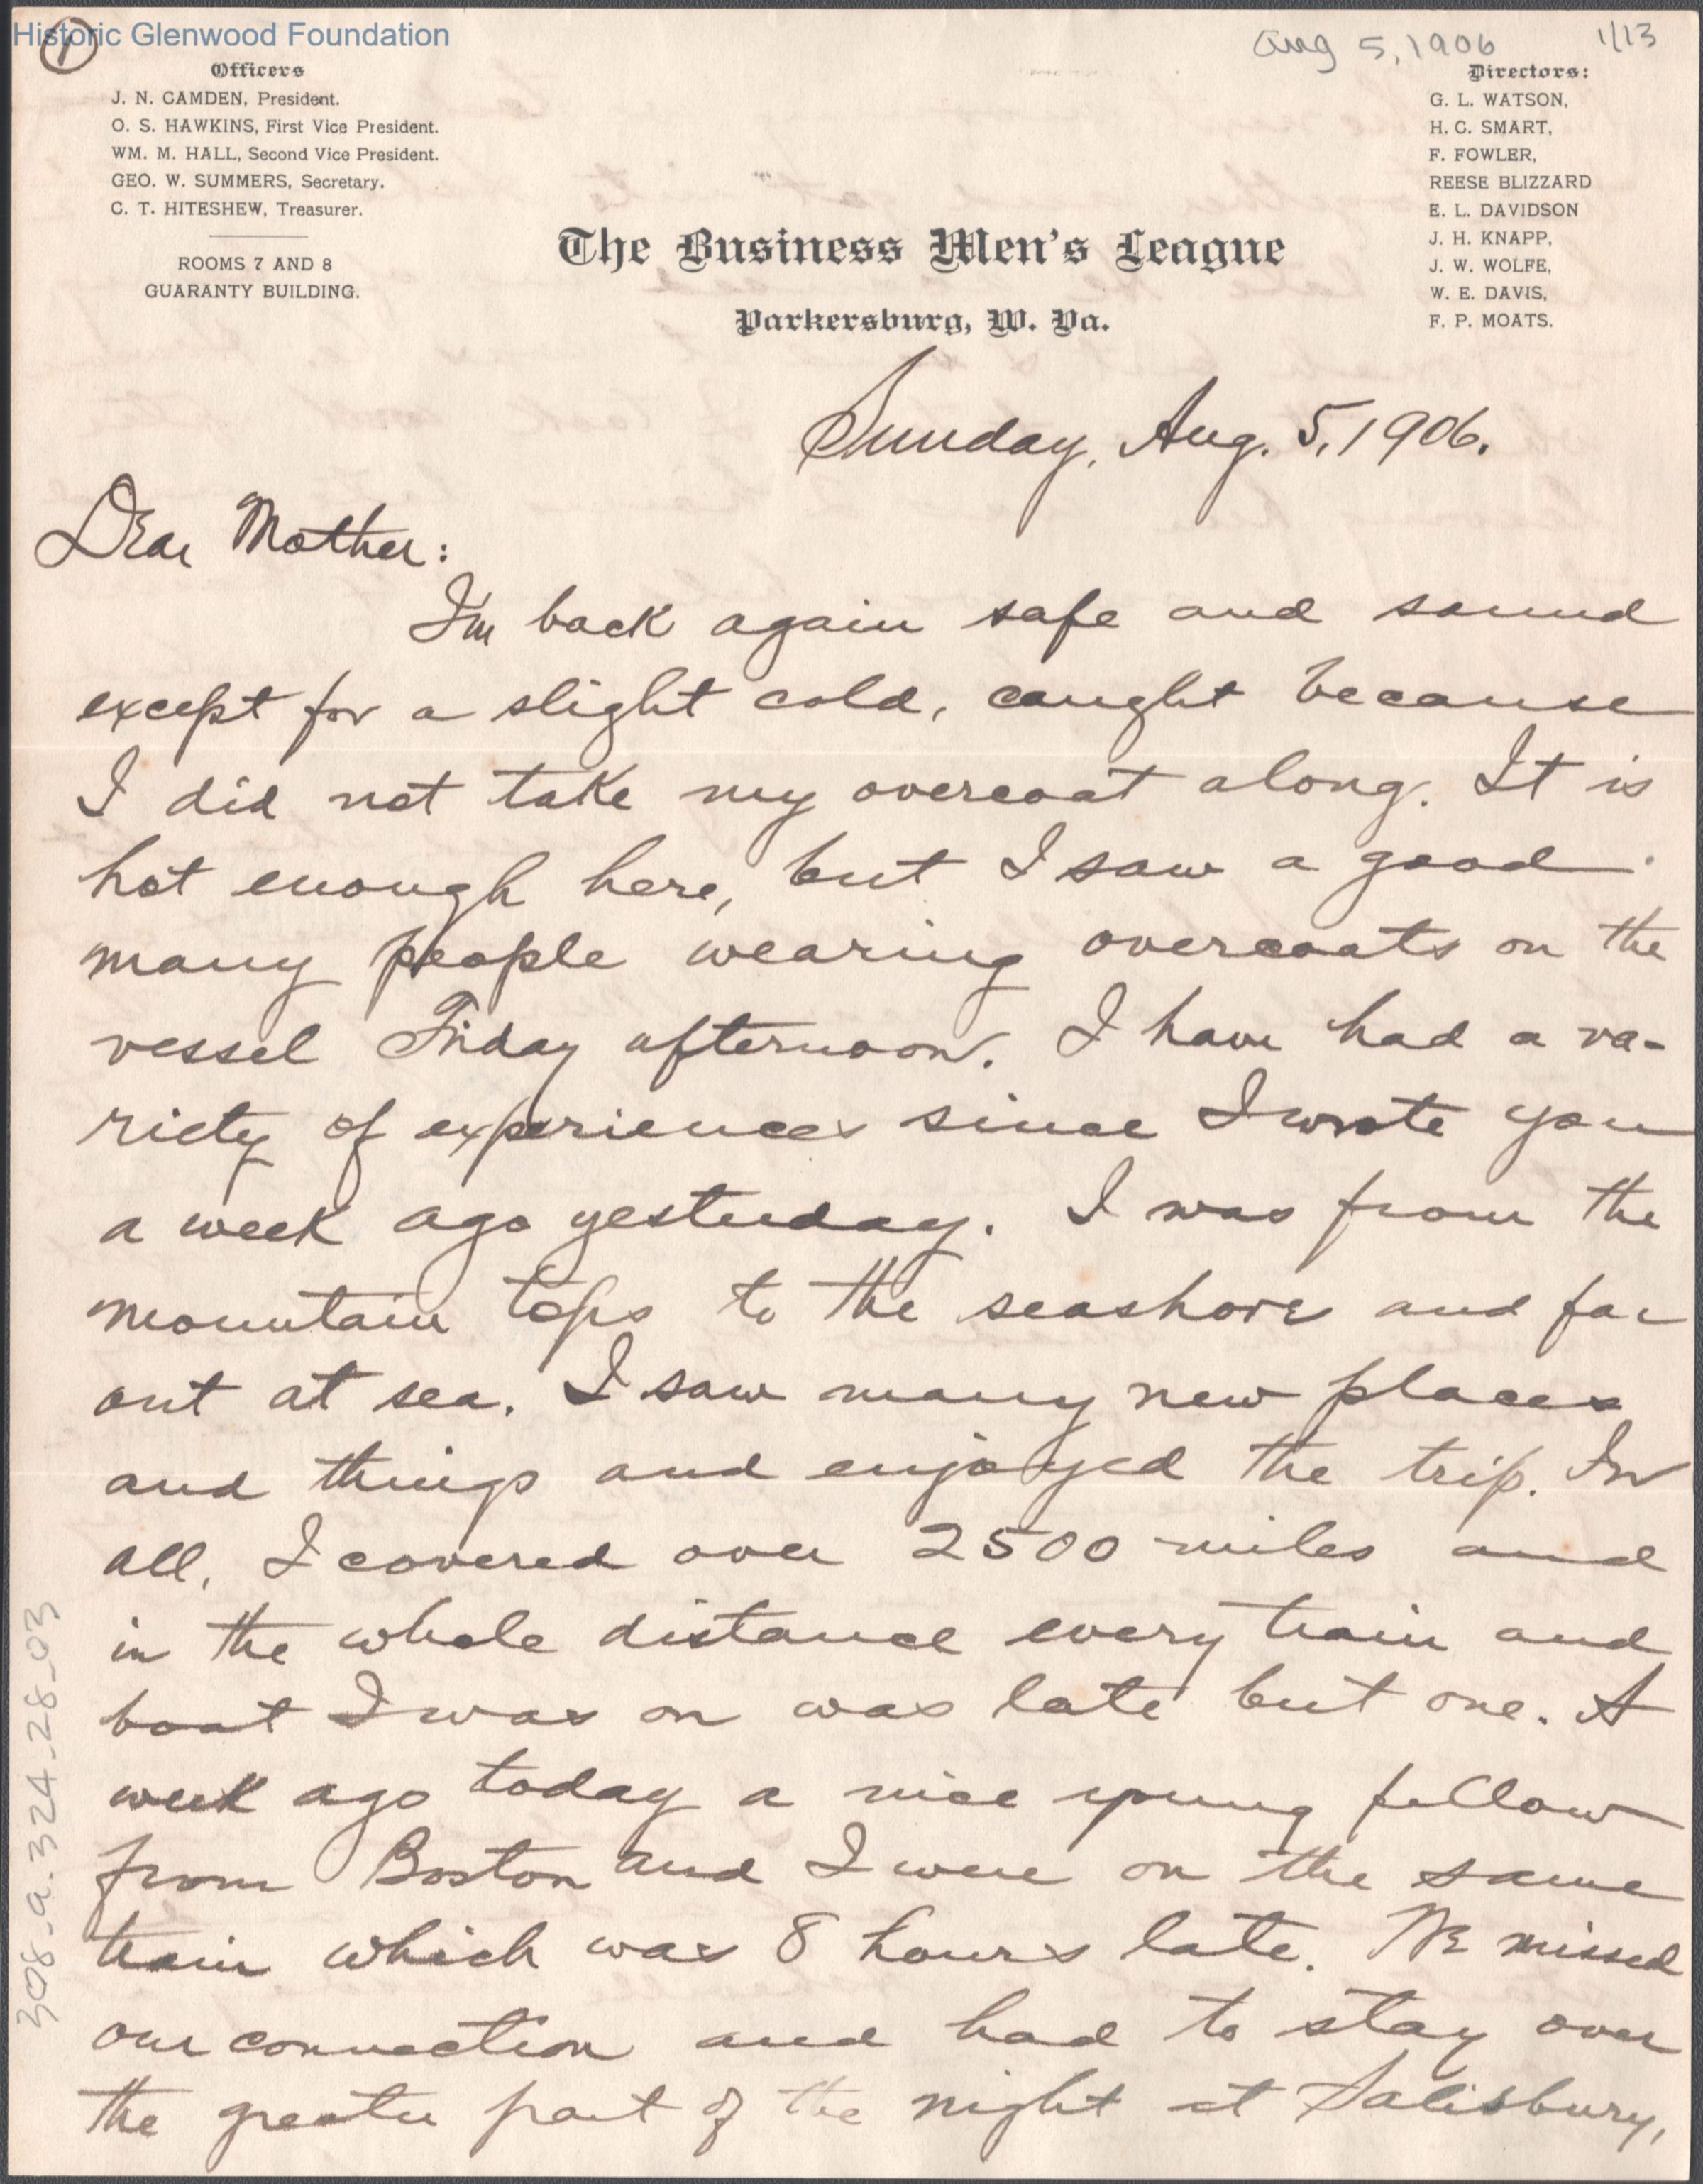 Historic Glenwood Foundation
1
Aug 5, 1906
1/13
Officers
J. N. CAMDEN, President.
O. S. HAWKINS, First Vice President.
WM. M. HALL, Second Vice President.
GEO. W. SUMMERS, Secretary.
C. T. HITESHEW, Treasurer.
ROOMS 7 AND 8
GUARANTY BUILDING.
The Business Men's League
Parkersburg, W. Va.
Directors:
G. L. WATSON,
H. C. SMART,
F. FOWLER,
REESE BLIZZARD
E. L. DAVIDSON
J. H. KNAPP,
J. W. WOLFE,
W. E. DAVIS,
F. P. MOATS.
Sunday, Aug. 5, 1906.
Dear Mother:
I'm back again safe and sound
except for a slight cold, caught because
I did not take my overcoat along. It is
hot enough here, but I saw a good
many people wearing overcoats on the
vessel Friday afternoon. I have had a va-
riety of experiences since I wrote you
a week ago yesterday. I was from the
mountain tops to the seashore and far
out at sea. I saw many new places
and things and enjoyed the trip. In
all, I covered over 2500 miles and
in the whole distance every train and
boat I was on was late but one. A
week ago today a nice young fellow
from Boston and I were on the same
train which was 8 hours late. We missed
our connection and had to stay over
the greater part of the night at Salisbury,
308_a.324_28_03